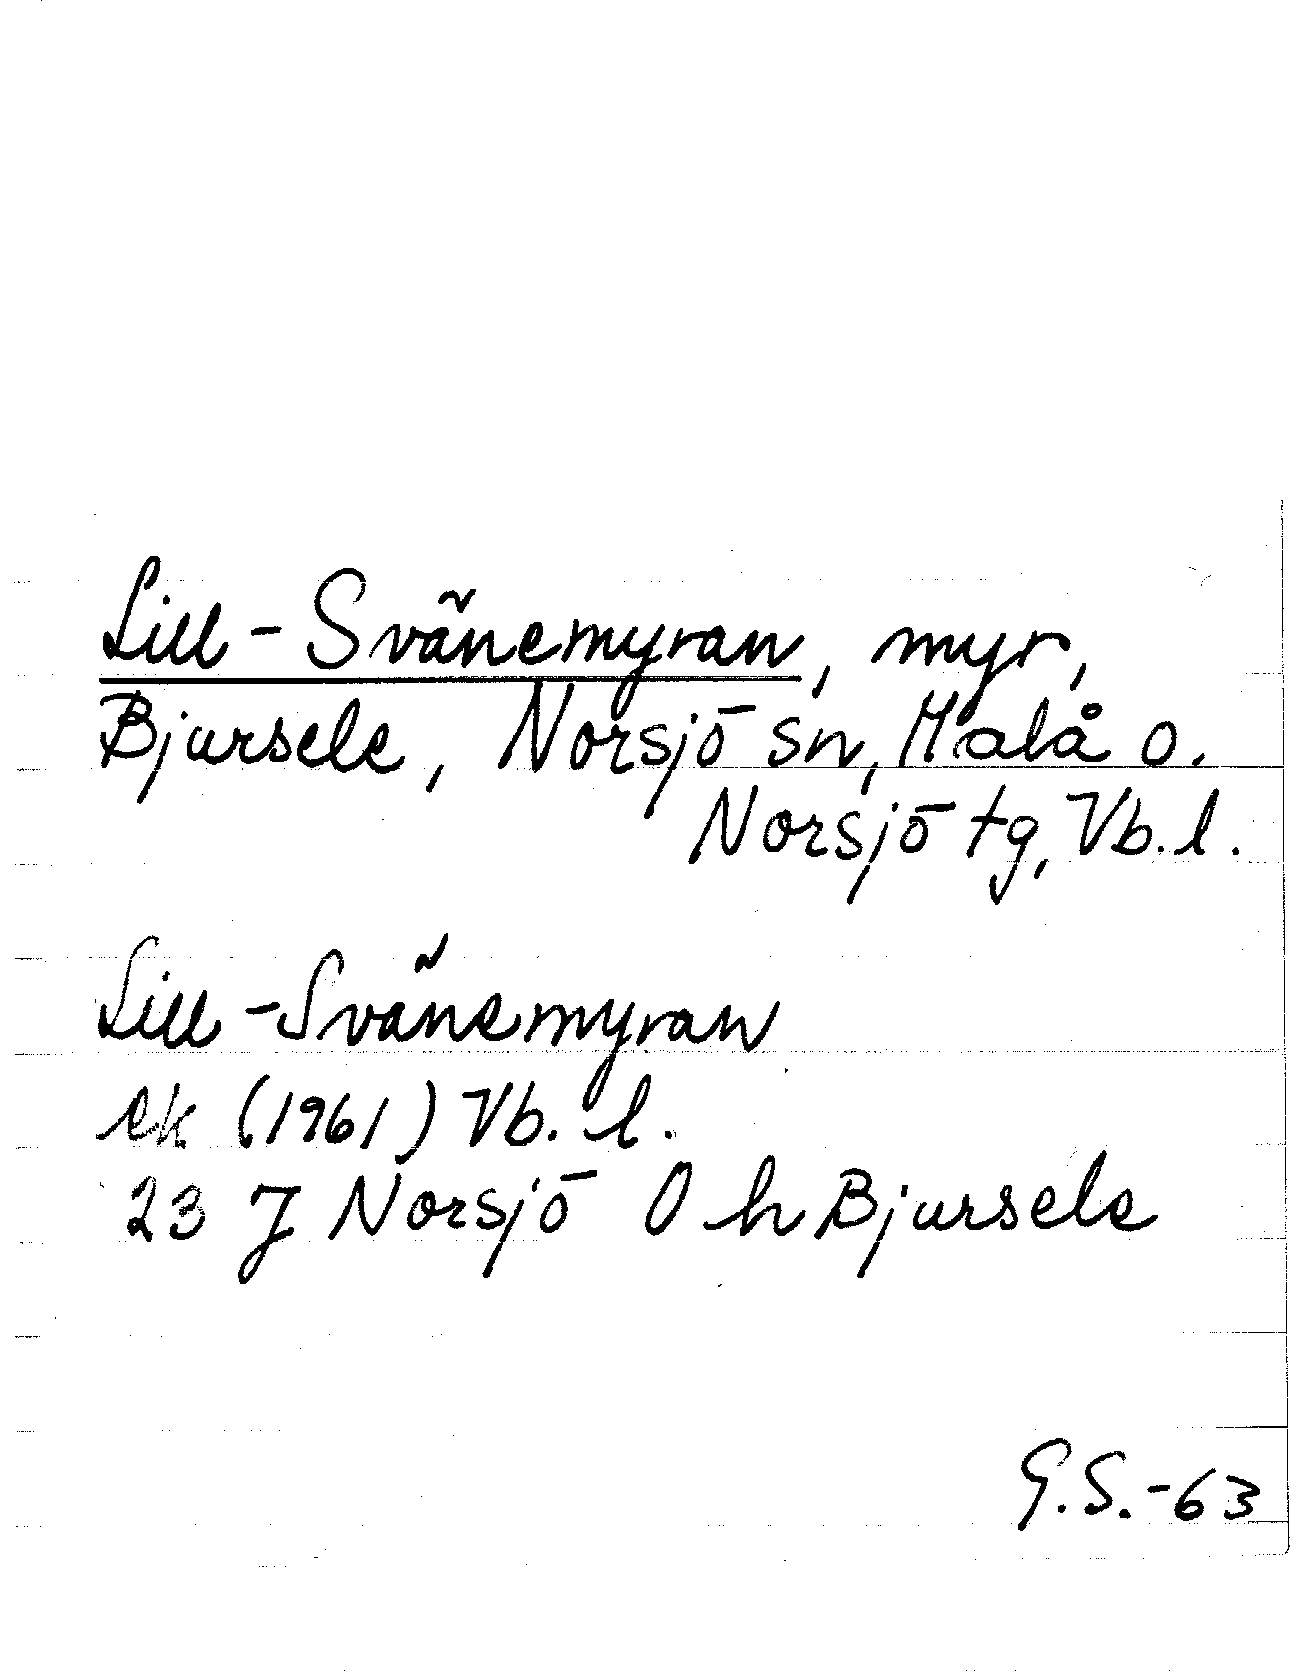 Lill-Svänemyran, myr,
Bjursele, Norsjö sn, Malå o.
Norsjö tg, Vb. l.
Lill-Svänemyran
ek (1961) Vb. l.
23 J Norsjö O h Bjursele
G.S.-63